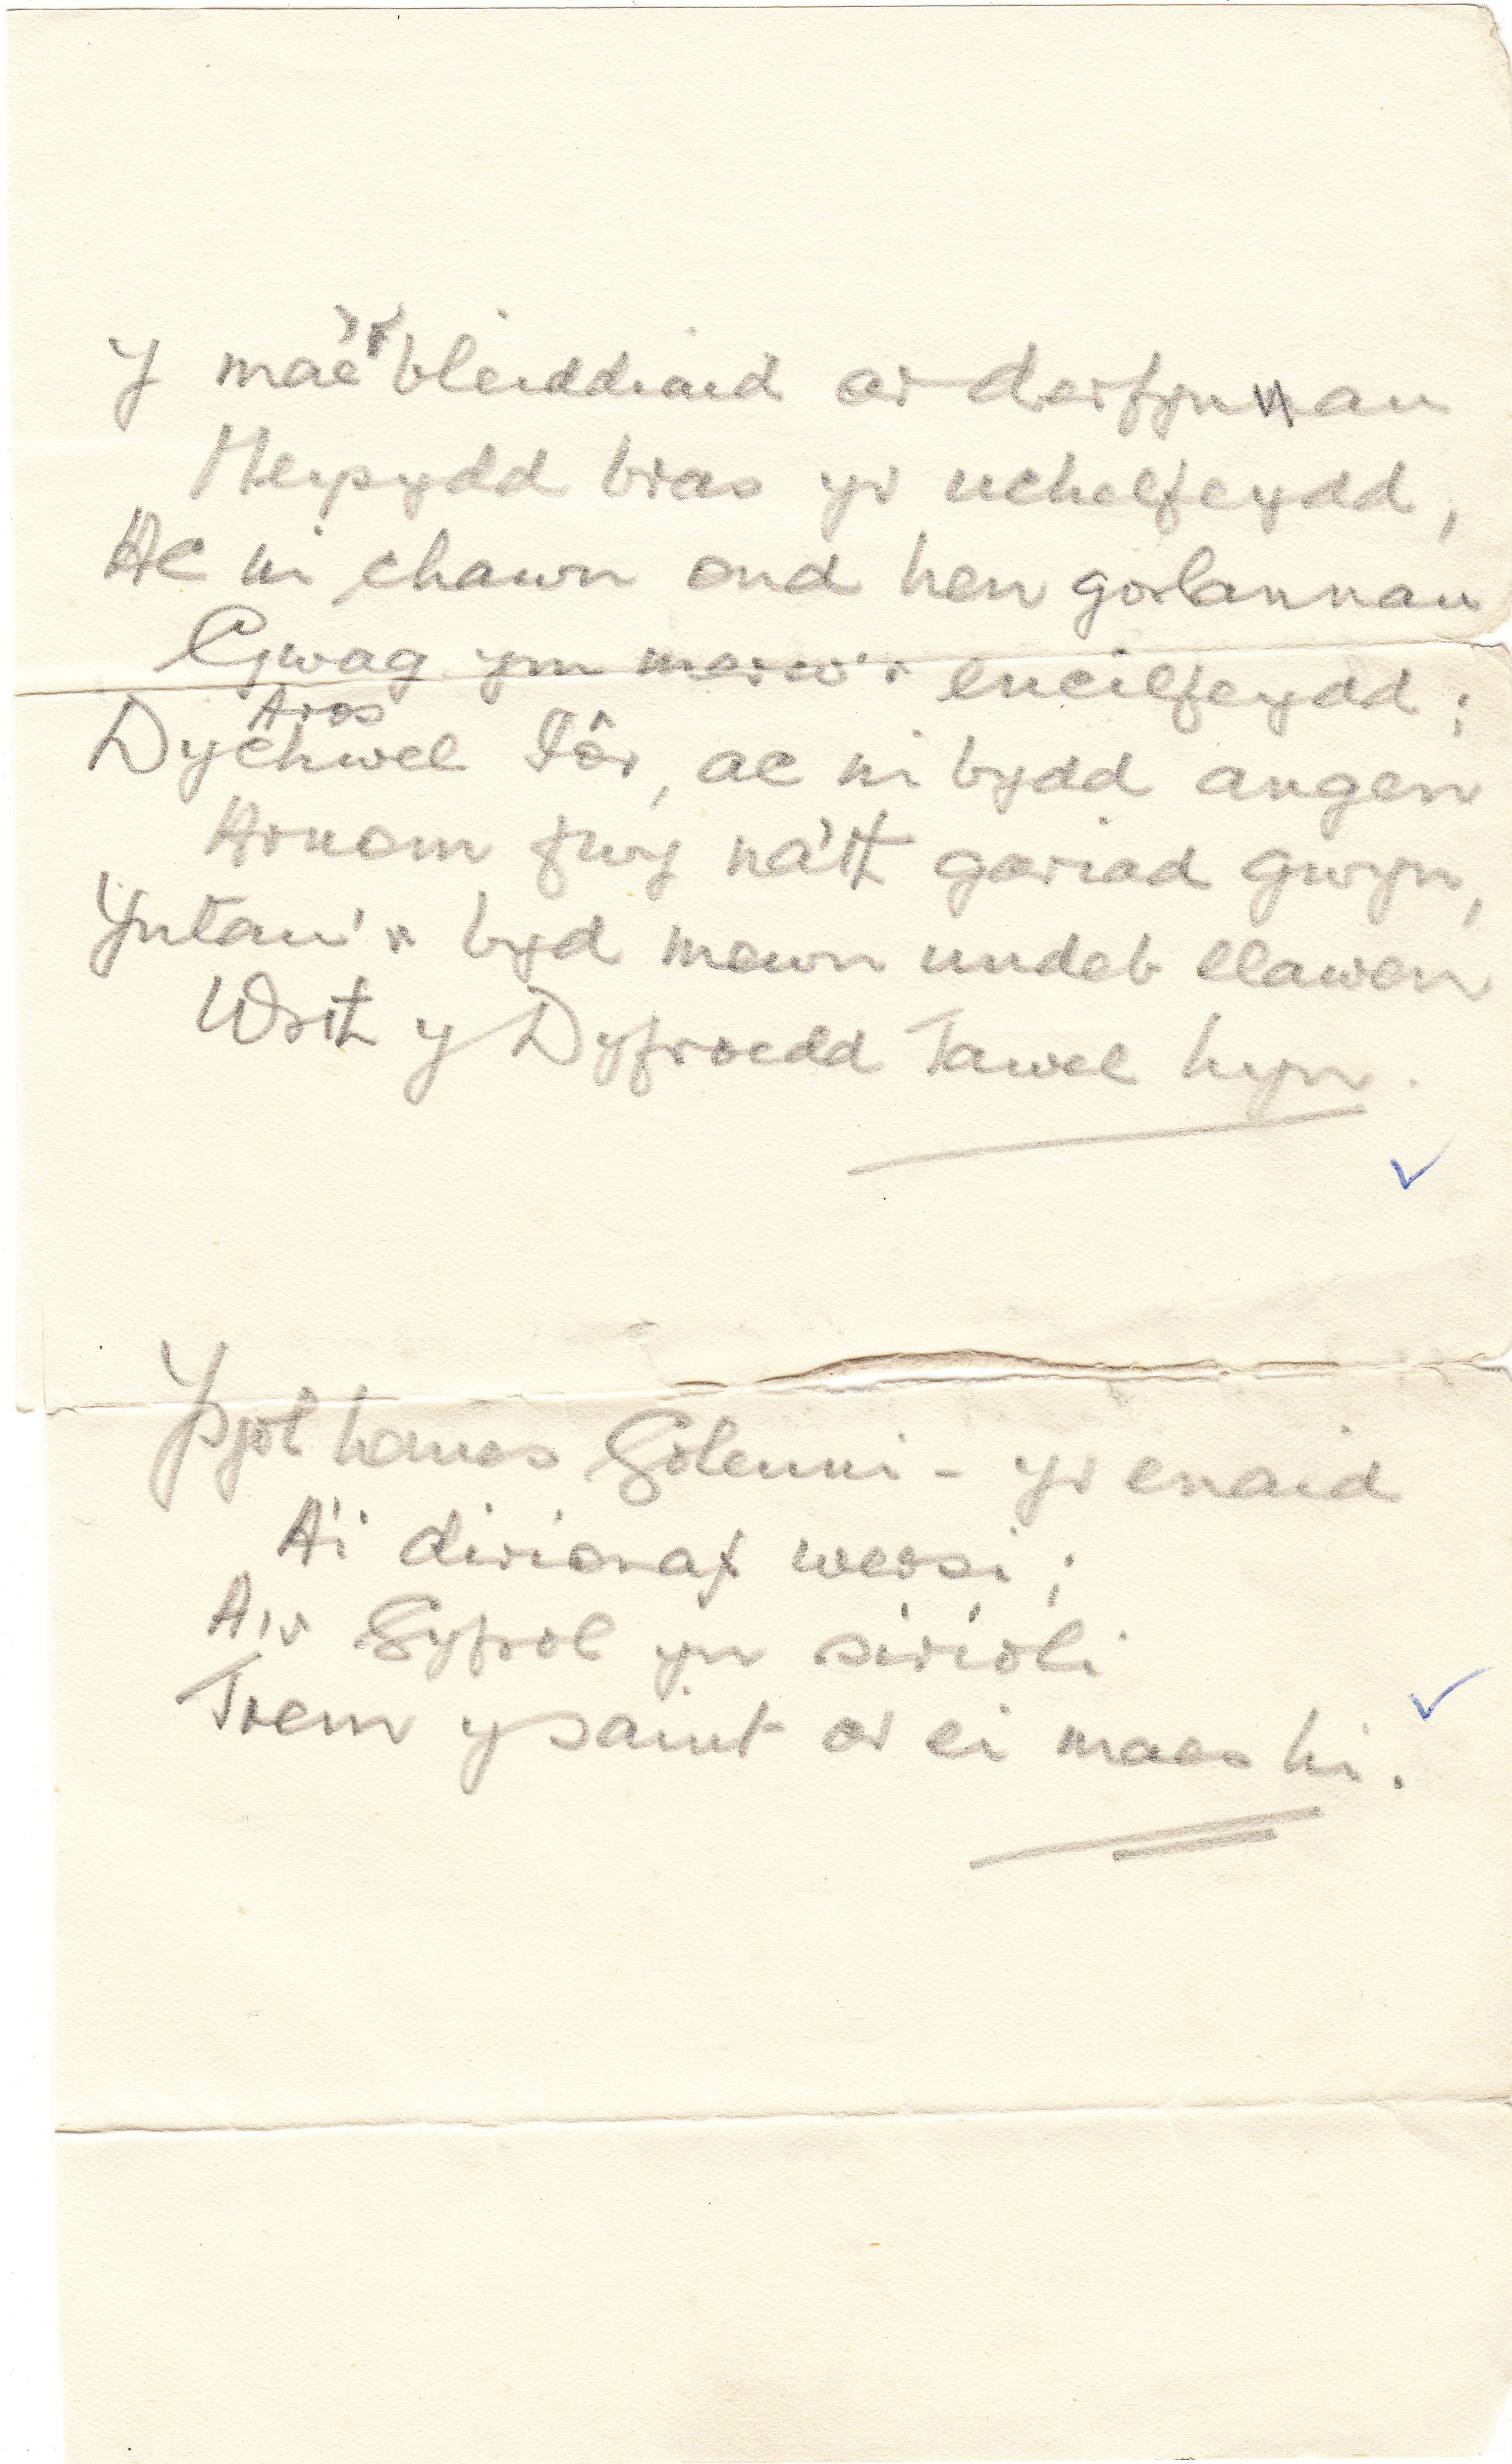 Y mae'r bleiddiaid ar derfynnau
Meysydd bras yr uchelfeydd,
Ac ni chawn ond hen gorlannau
Gwag ym merw'r encilfeydd;
Aros
Dychwel Iôr, ac ni bydd angen
Arnom fwy na'th gariad gwyn,
Yntau'n byd mewn undeb llawen
Wrth y Dyfroedd Tawel hyn.
Ysgol hanes Goleuni - yr enaid
A'i dirionaf wersi;
A'r Gyfrol yn sirioli
Trem y saint ar ei maes hi.